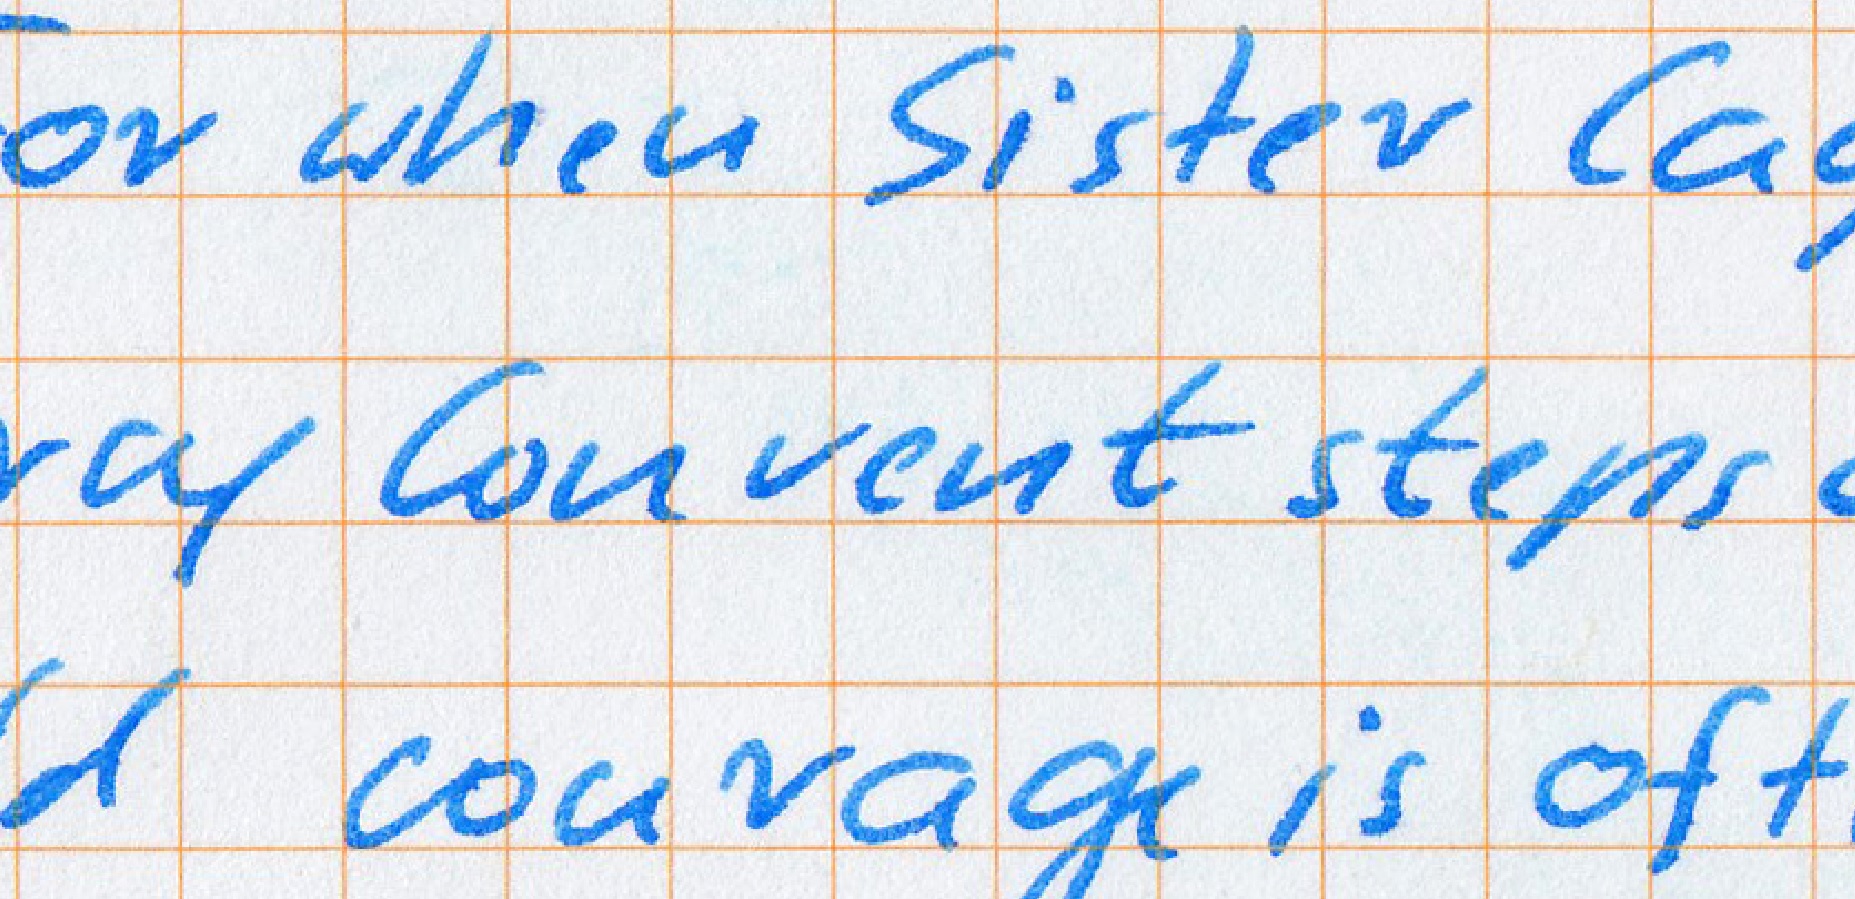 For when Sister Cag
ray Convent steps
courage is oft